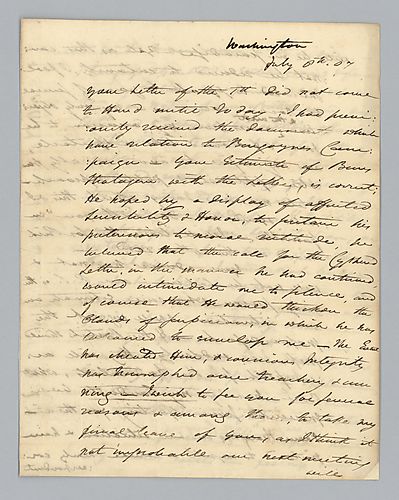 Washington
July 8th. 07
your Letter of the 7th did not come
to Hand until To day. I had previ-
ously received the Document which
have relation to Burgoynes Cam-
paign & your Estimate of Burrs
with the Letter, is correct;
He hoped by a display of affected
Sensibility & Honor, to sustain his
pretensions to moral rectitude, he
believed that the call for the Cyphered
Letter, in the manner he had contrived
would intimidate me to silence, and
of course that He would thicken the
Clouds of suspicion, in which he has
to envelop me — The Event
has cheated Him, & conscious Integrity
has triumphed over treachery & cun-
ning — I wish to see you for several
reasons & among them, to take my
final leave of yours, as I think it
not improbable our next meeting
will